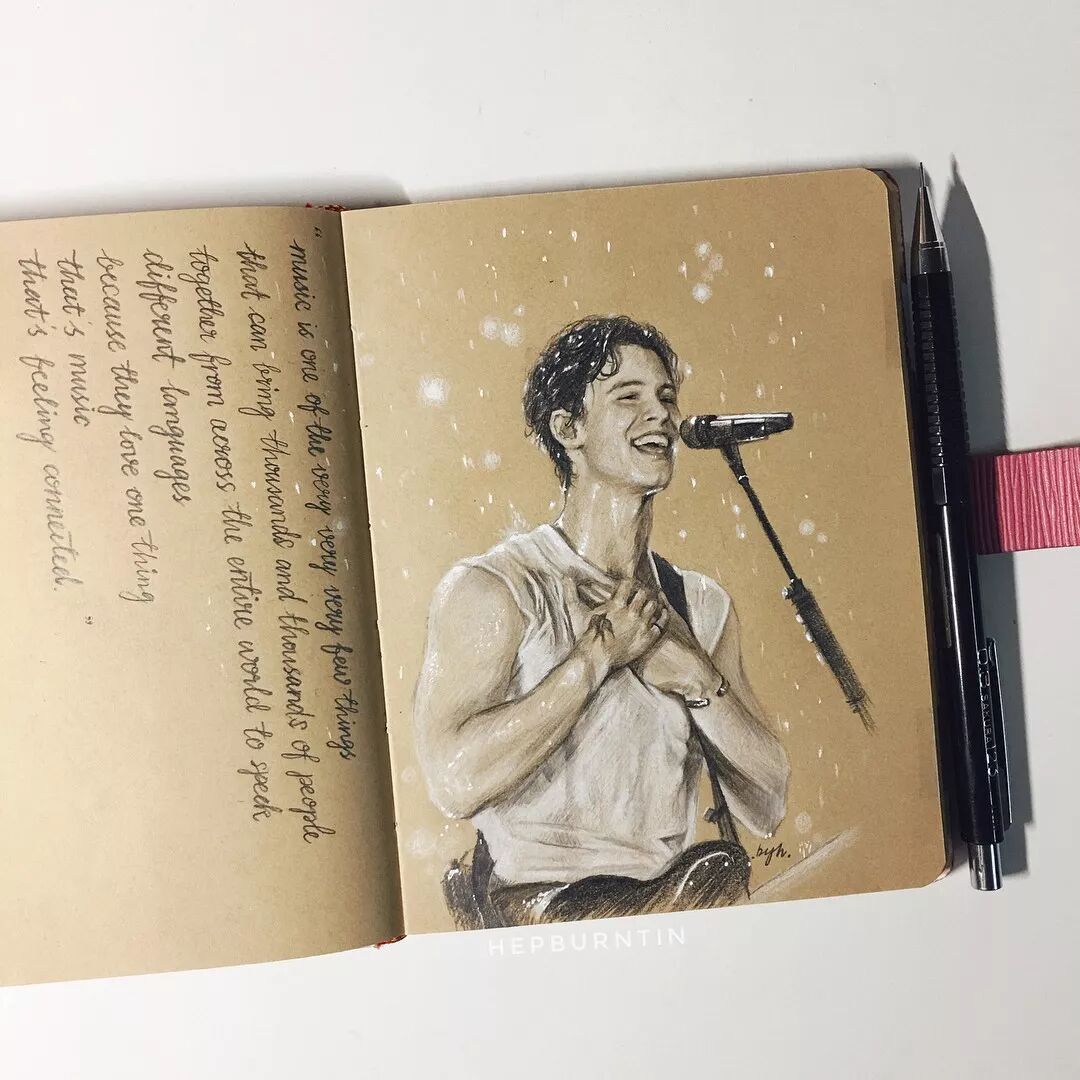 “
music is one of the very very very few things
that can bring thousands and thousands of people
together from across the entire world to speek
different languages
because they love one thing
that's music
that's feeling connected.
”
.byh.
SAKURA
HEPBURNTIN